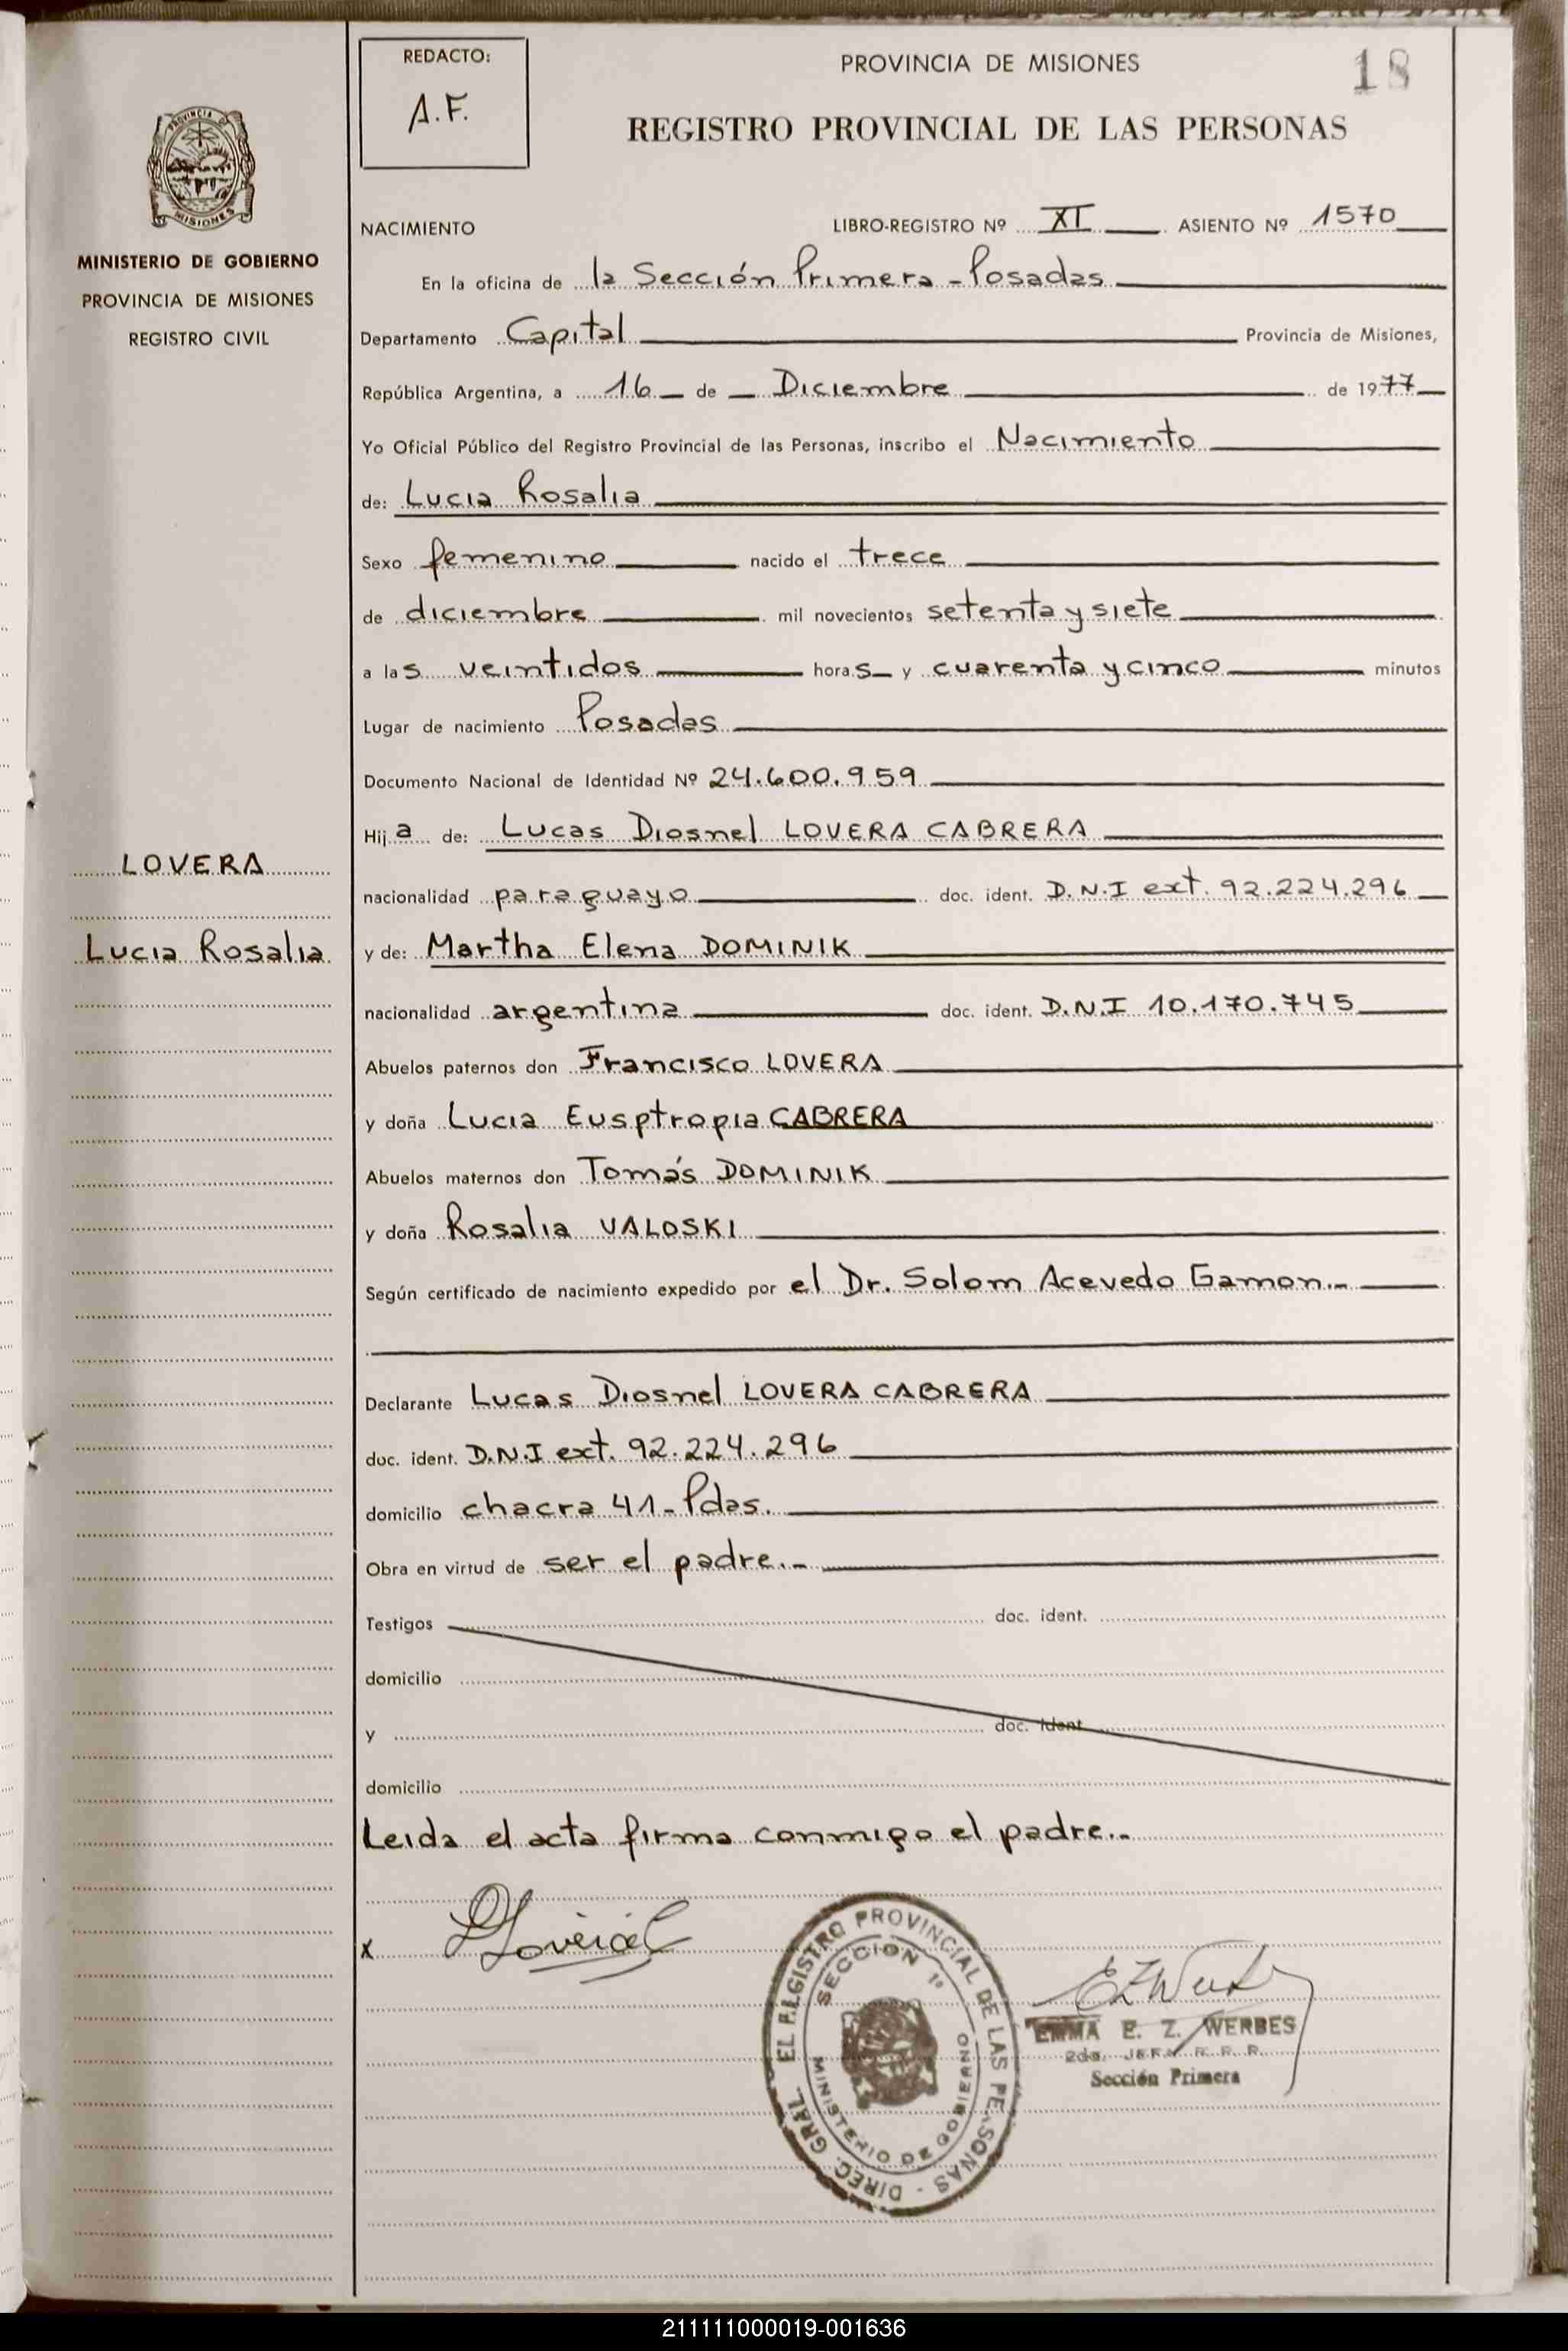 REDACTO:
A.F.
PROVINCIA DE MISIONES
18
REGISTRO PROVINCIAL DE LAS PERSONAS
PROVINCIA DE
MISIONES
MINISTERIO DE GOBIERNO
PROVINCIA DE MISIONES
REGISTRO CIVIL
LOVERA
Lucia Rosalia
NACIMIENTO LIBRO-REGISTRO Nº XI ASIENTO Nº 1570
En la oficina de la Sección Primera - Posadas
Departamento Capital Provincia de Misiones,
República Argentina, a 16 de Diciembre de 1977
Yo Oficial Público del Registro Provincial de las Personas, inscribo el Nacimiento
de: Lucia Rosalia
Sexo femenino nacido el trece
de diciembre mil novecientos setenta y siete
a las veintidos horas y cuarenta y cinco minutos
Lugar de nacimiento Posadas
Documento Nacional de Identidad Nº 24.600.959
Hija de: Lucas Diosnel LOVERA CABRERA
nacionalidad paraguayo doc. ident. D.N.I ext. 92.224.296
y de: Martha Elena DOMINIK
nacionalidad argentina doc. ident. D.N.I 10.170.745
Abuelos paternos don Francisco LOVERA
y doña Lucia Eusptropia CABRERA
Abuelos maternos don Tomás DOMINIK
y doña Rosalia VALOSKI
Según certificado de nacimiento expedido por el Dr. Solom Acevedo Gamon.-
Declarante Lucas Diosnel LOVERA CABRERA
doc. ident. D.N.I ext. 92.224.296
domicilio chacra 41 - Pdas.
Obra en virtud de ser el padre.-
Testigos doc. ident.
domicilio
y doc. ident.
domicilio
Leida el acta firma conmigo el padre.-
x
DIREC. GRAL. EL REGISTRO PROVINCIAL DE LAS PERSONAS -
SECCION 1º
MINISTERIO DE GOBIERNO
EMMA E. Z. WERBES
2da. JEFA R. P. P.
Sección Primera
211111000019-001636